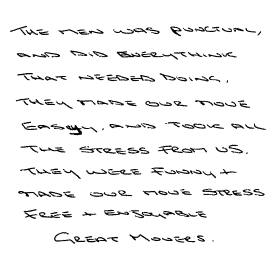 THE MEN WAS PUNCTUAL,
AND DID EVERYTHINK
THAT NEEDED DOING.
THEY MADE OUR MOVE
EASY, AND TOOK ALL
THE STRESS FROM US.
THEY WERE FUNNY +
MADE OUR MOVE STRESS
FREE + ENJOYABLE
GREAT MOVERS.